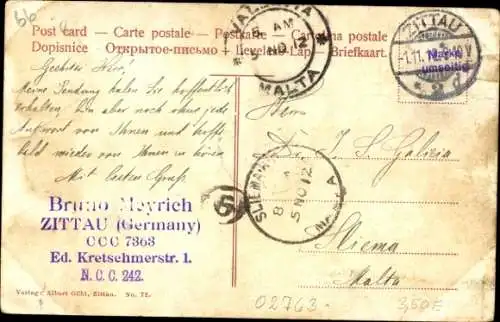 bb
Post card - Carte postale - Postkarte - Cartolina postale
Dopisnice - Открытое-письмо - Levelező-Lap - Briefkaart.
VALLETTA
AM
5 NO 12
MALTA
ZITTAU
-1.11.12
10 V
* 2 d
Marke
umseitig
Geehrter Herr!
Meine Sendung haben Sie hoffentlich
erhalten. Bin aber noch ohne jede
Antwort von Ihnen und hoffe
bald wieder von Ihnen zu hören
Mit besten Gruß
Herrn
J. S. Galizia
Sliema
Malta
SLIEMA
8
5 NO 12
MALTA
5
Bruno Heyrich
ZITTAU (Germany)
CCC 7363
Ed. Kretschmerstr. 1.
N. C. C. 242.
Verlag: Albert Göhl, Zittau. No. 72.
02763
3,50E